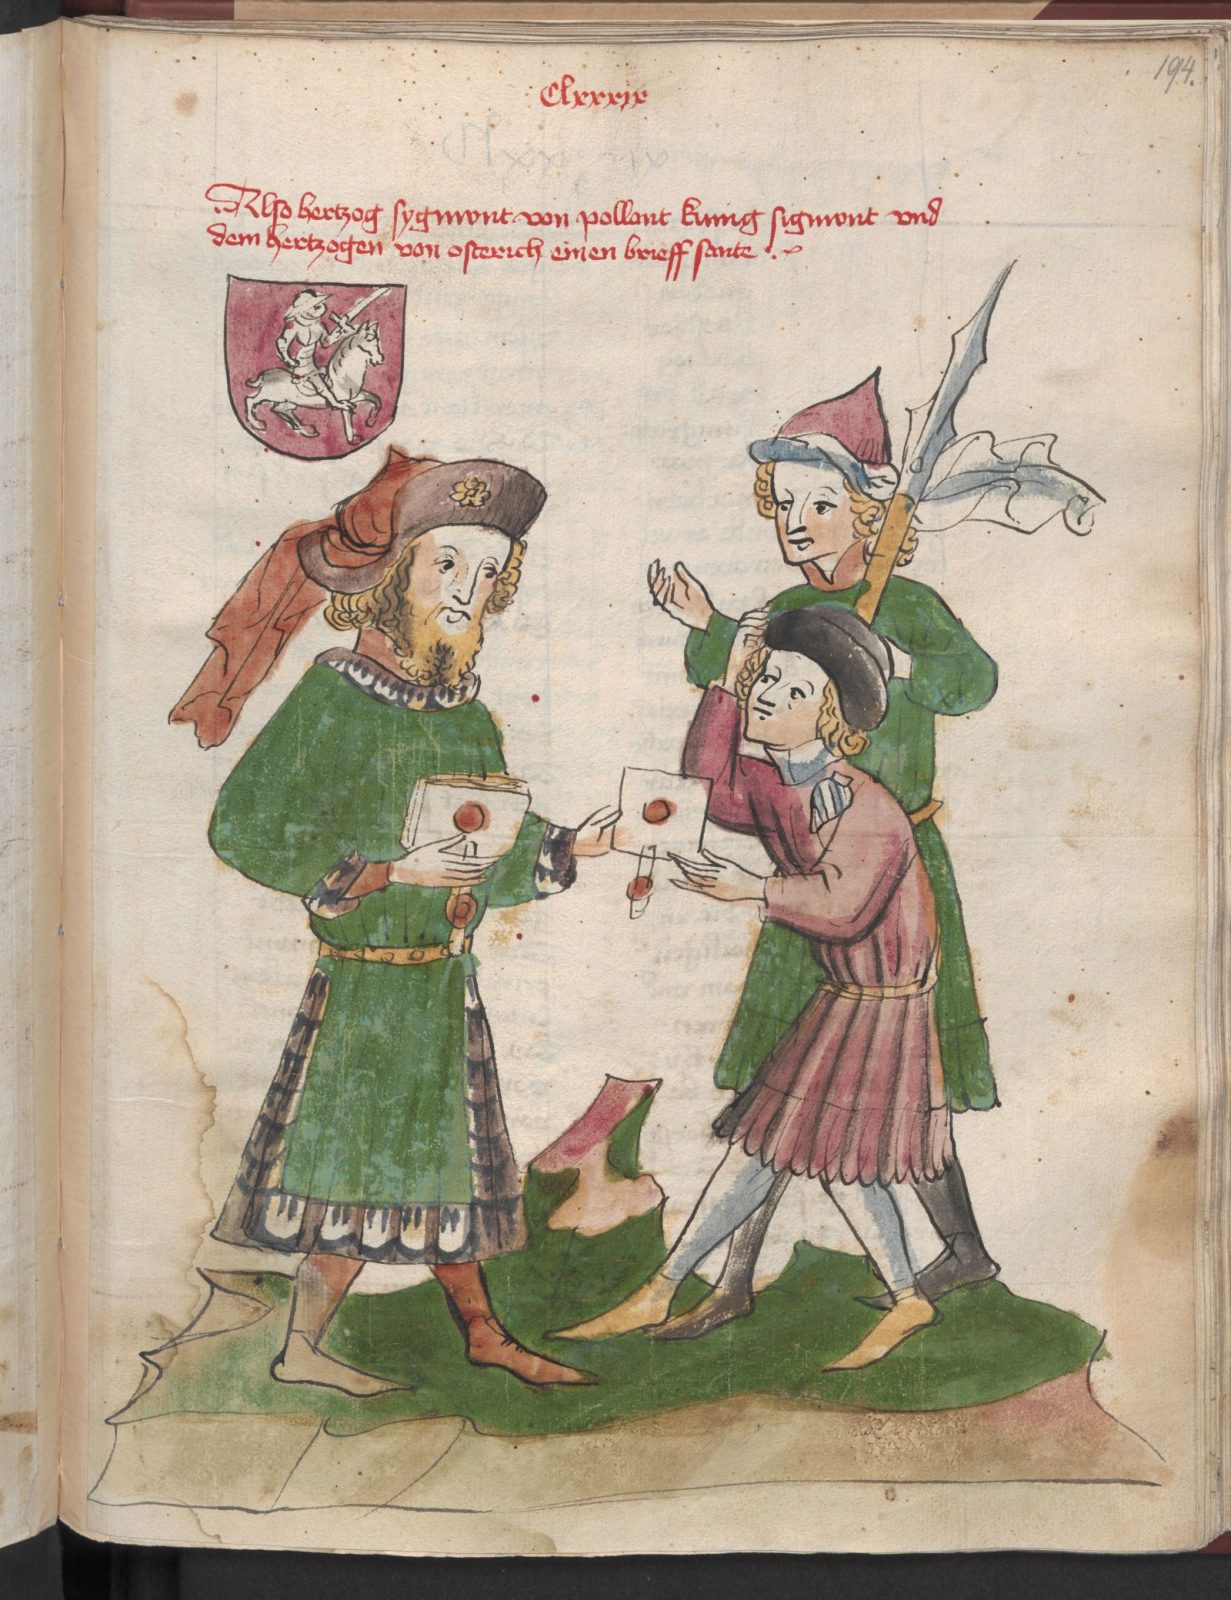 194.
Clxxxix
Also hertzog sygmont von pollant kunig sigmont vnd
dem hertzogen von osterich einen brieff sante